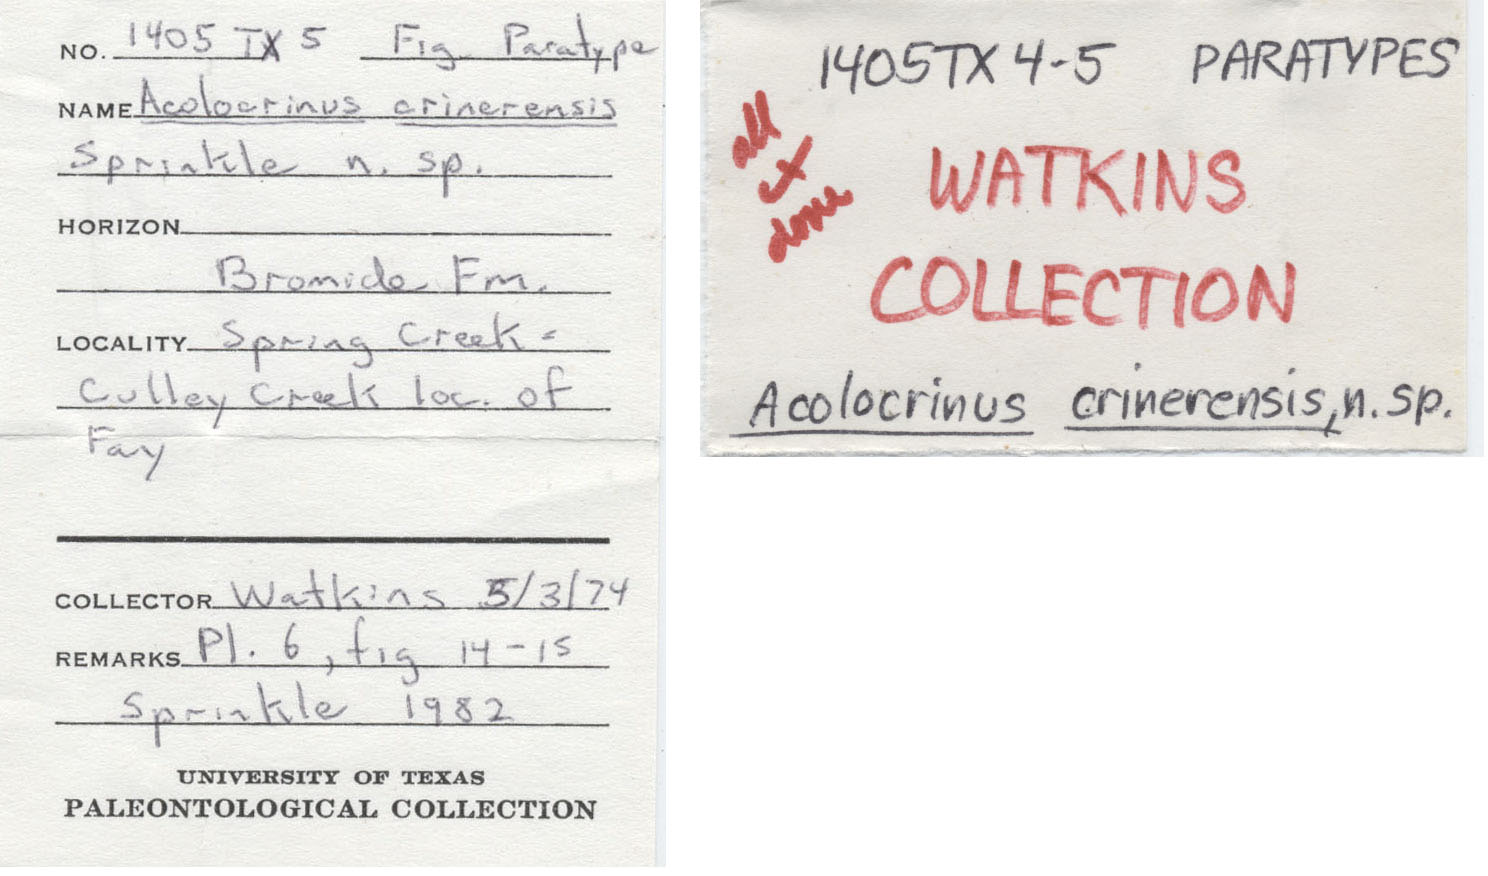 NO. 1405 TX 5 Fig. Paratype
NAME Acolocrinus crinerensis
Sprinkle n. sp.
HORIZON
Bromide Fm.
LOCALITY Spring Creek =
Culley Creek loc. of
Fay
COLLECTOR Watkins 5/3/74
REMARKS Pl. 6, fig 14-15
Sprinkle 1982
UNIVERSITY OF TEXAS
PALEONTOLOGICAL COLLECTION
1405TX 4-5 PARATYPES
all
ct
done
WATKINS
COLLECTION
Acolocrinus crinerensis, n. sp.